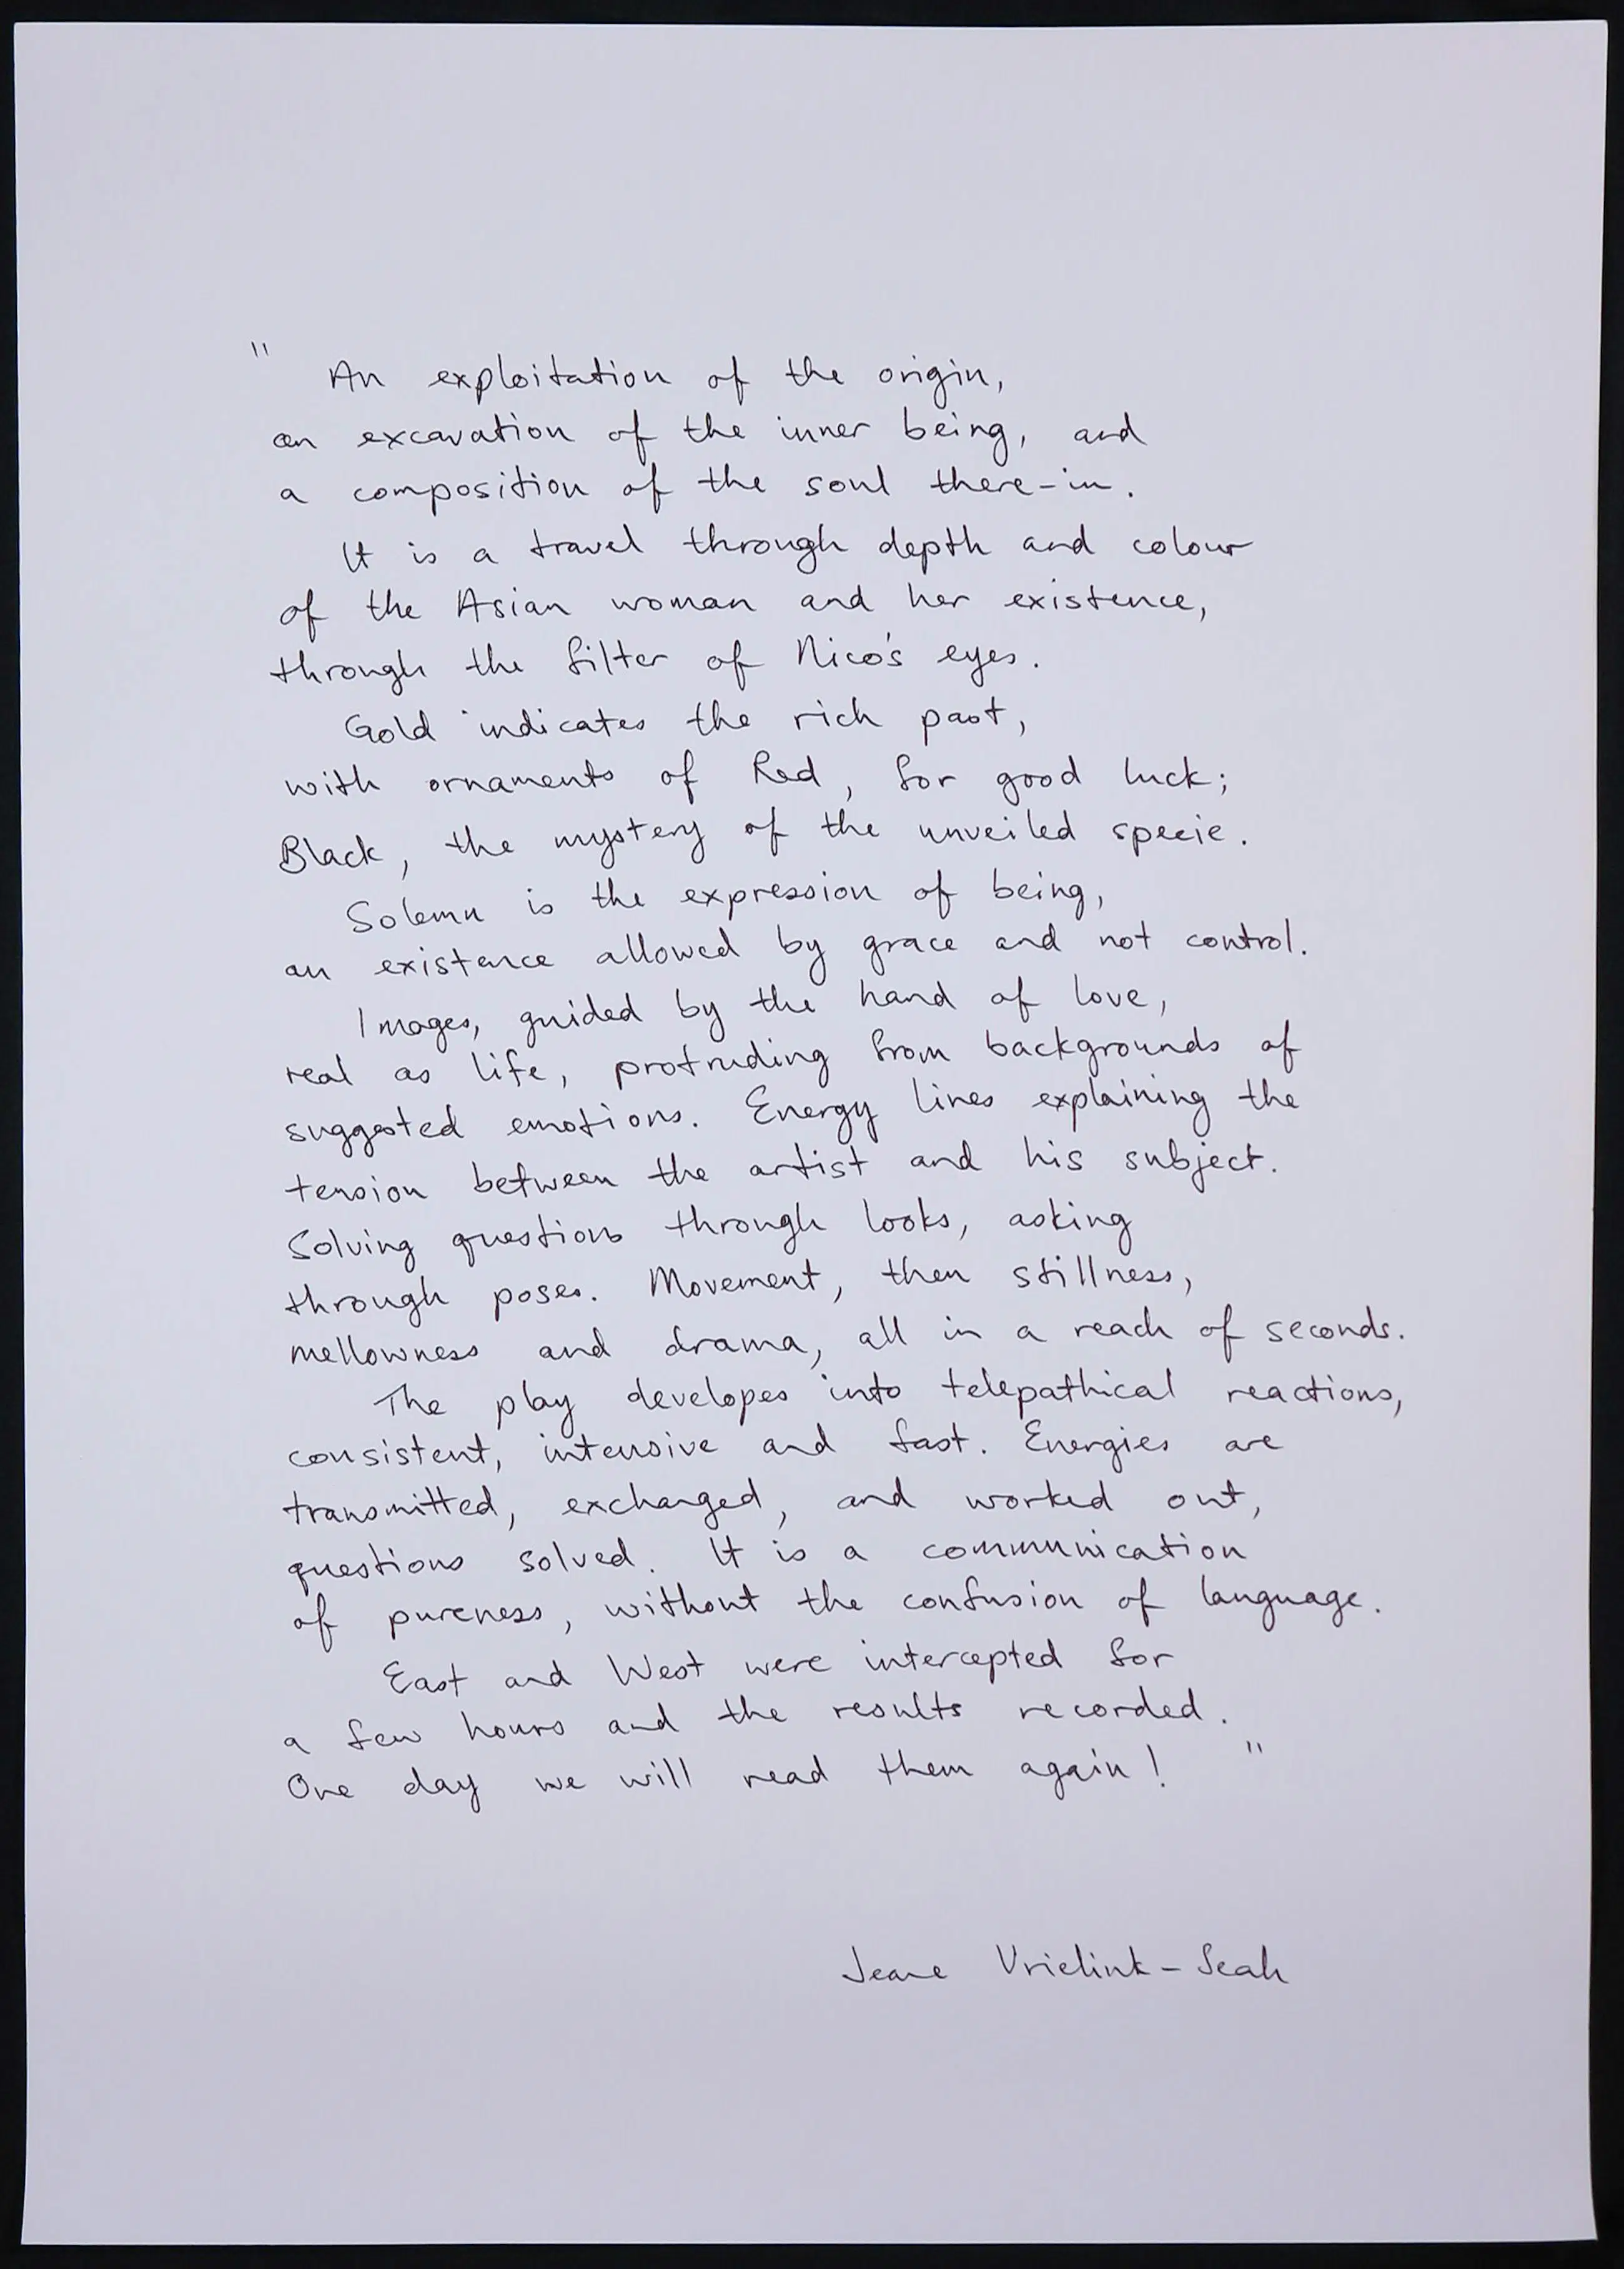 "
An exploitation of the origin,
an excavation of the inner being, and
a composition of the soul there-in.
It is a travel through depth and colour
of the Asian woman and her existence,
through the filter of Nico's eyes.
Gold indicates the rich past,
with ornaments of Red, for good luck;
Black, the mystery of the unveiled specie.
Solemn is the expression of being,
an existence allowed by grace and not control.
Images, guided by the hand of love,
real as life, protruding from backgrounds of
suggested emotions. Energy lines explaining the
tension between the artist and his subject.
Solving questions through looks, asking
through poses. Movement, then stillness,
mellowness and drama, all in a reach of seconds.
The play developes into telepathical reactions,
consistent, intensive and fast. Energies are
transmitted, exchanged, and worked out,
questions solved. It is a communication
of pureness, without the confusion of language.
East and West were intercepted for
a few hours and the results recorded.
One day we will read them again! "
Jeane Vrielink-Seah